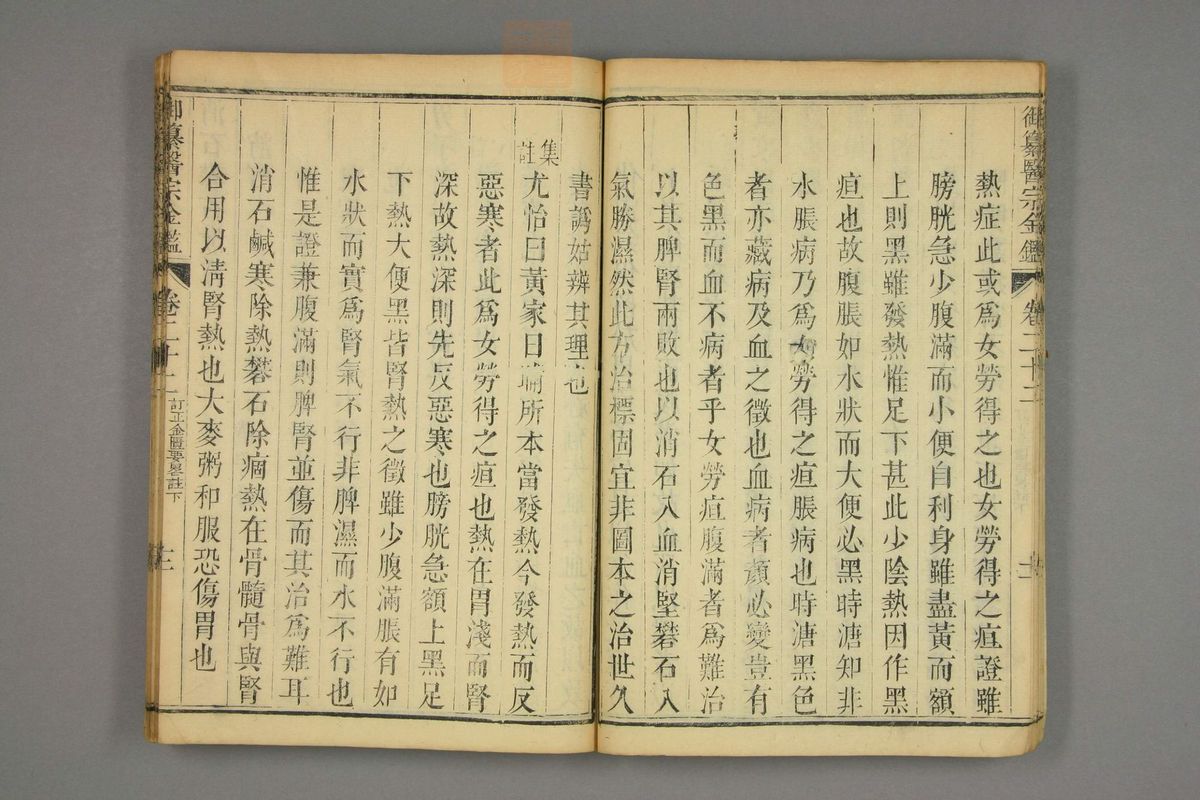 御纂醫宗金鑑 卷二十二
熱症此或爲女勞得之也女勞得之疸證雖
膀胱急少腹滿而小便自利身雖盡黃而額
上則黑雖發熱惟足下甚此少陰熱因作黑
疸也故腹脹如水狀而大便必黑時溏知非
水脹病乃爲女勞得之疸脹病也時溏黑色
者亦藏病及血之徵也血病者顏必變豈有
色黑而血不病者乎女勞疸腹滿者爲難治
以其脾腎兩敗也以消石入血消堅礬石入
氣勝濕然此方治標固宜非圖本之治世久
書譌姑辨其理也
集註
尤怡曰黃家日晡所本當發熱今發熱而反
惡寒者此爲女勞得之疸也熱在胃淺而腎
深故熱深則先反惡寒也膀胱急額上黑足
下熱大便黑皆腎熱之徵雖少腹滿脹有如
水狀而實爲腎氣不行非脾濕而水不行也
惟是證兼腹滿則脾腎並傷而其治爲難耳
消石鹹寒除熱礬石除痼熱在骨髓骨與腎
合用以淸腎熱也大麥粥和服恐傷胃也
御纂醫宗金鑑 卷二十二 訂正金匱要畧註下